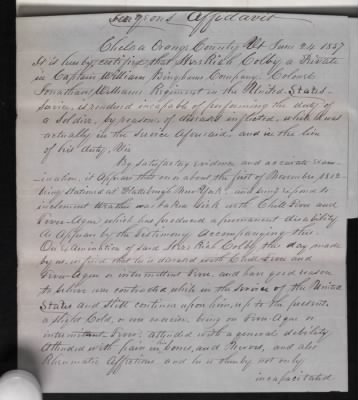 Surgeons Affidavit
Chelsea Orange County Vt June 24 1857
It is hereby certified that Hezkiah Colby a Private
in Captain William Binghams Company Colonel
Jonathan Williams Regiment in the United States
Service, is rendered incapable of performing the duty of
a Soldier, by reason of disease inflicted, while he was
actually in the Service Aforesaid and in the line
of his duty, Viz
By satisfactory evidence and accurate exam-
ination, it appears that on or about the first of November 1812
being stationed at Plattsburgh New York, and being exposed to
inclement weather was taken sick with Chill Fever and
Fever Ague which has produced a permanent disability
As Appears by the testimony Accompanying this.
On examination of said Colby this day made
by us, we find that he is diseased with Chill Fever and
Fever Ague or intermittent Fever, and have good reason
to believe was contracted while in the Service of the United
States and Still continues upon him, up to the present.
a slight Cold, or over exercise, brings on Fever Ague or
intermittent Fever, attended with a general debility
Attended with pain in bones, and Nerves, and also
Rheumatic Affections, and he is thereby not only
incapacitated